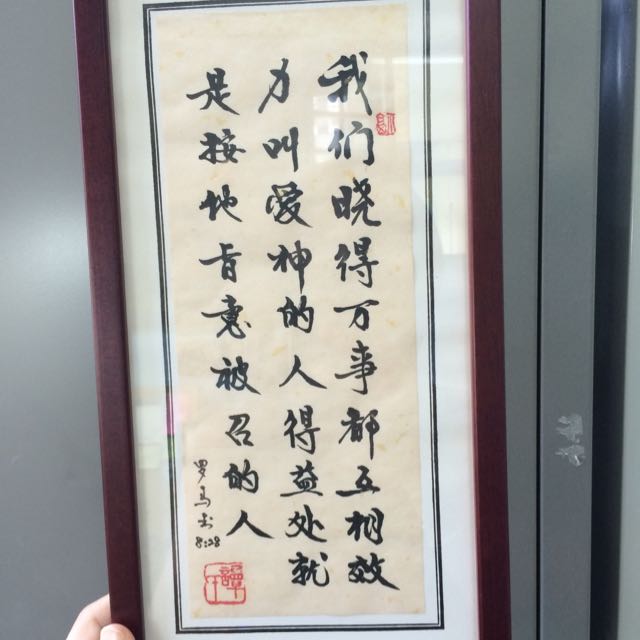 我们晓得万事都互相效
力叫爱神的人得益处就
是按他旨意被召的人
罗马书
8:28